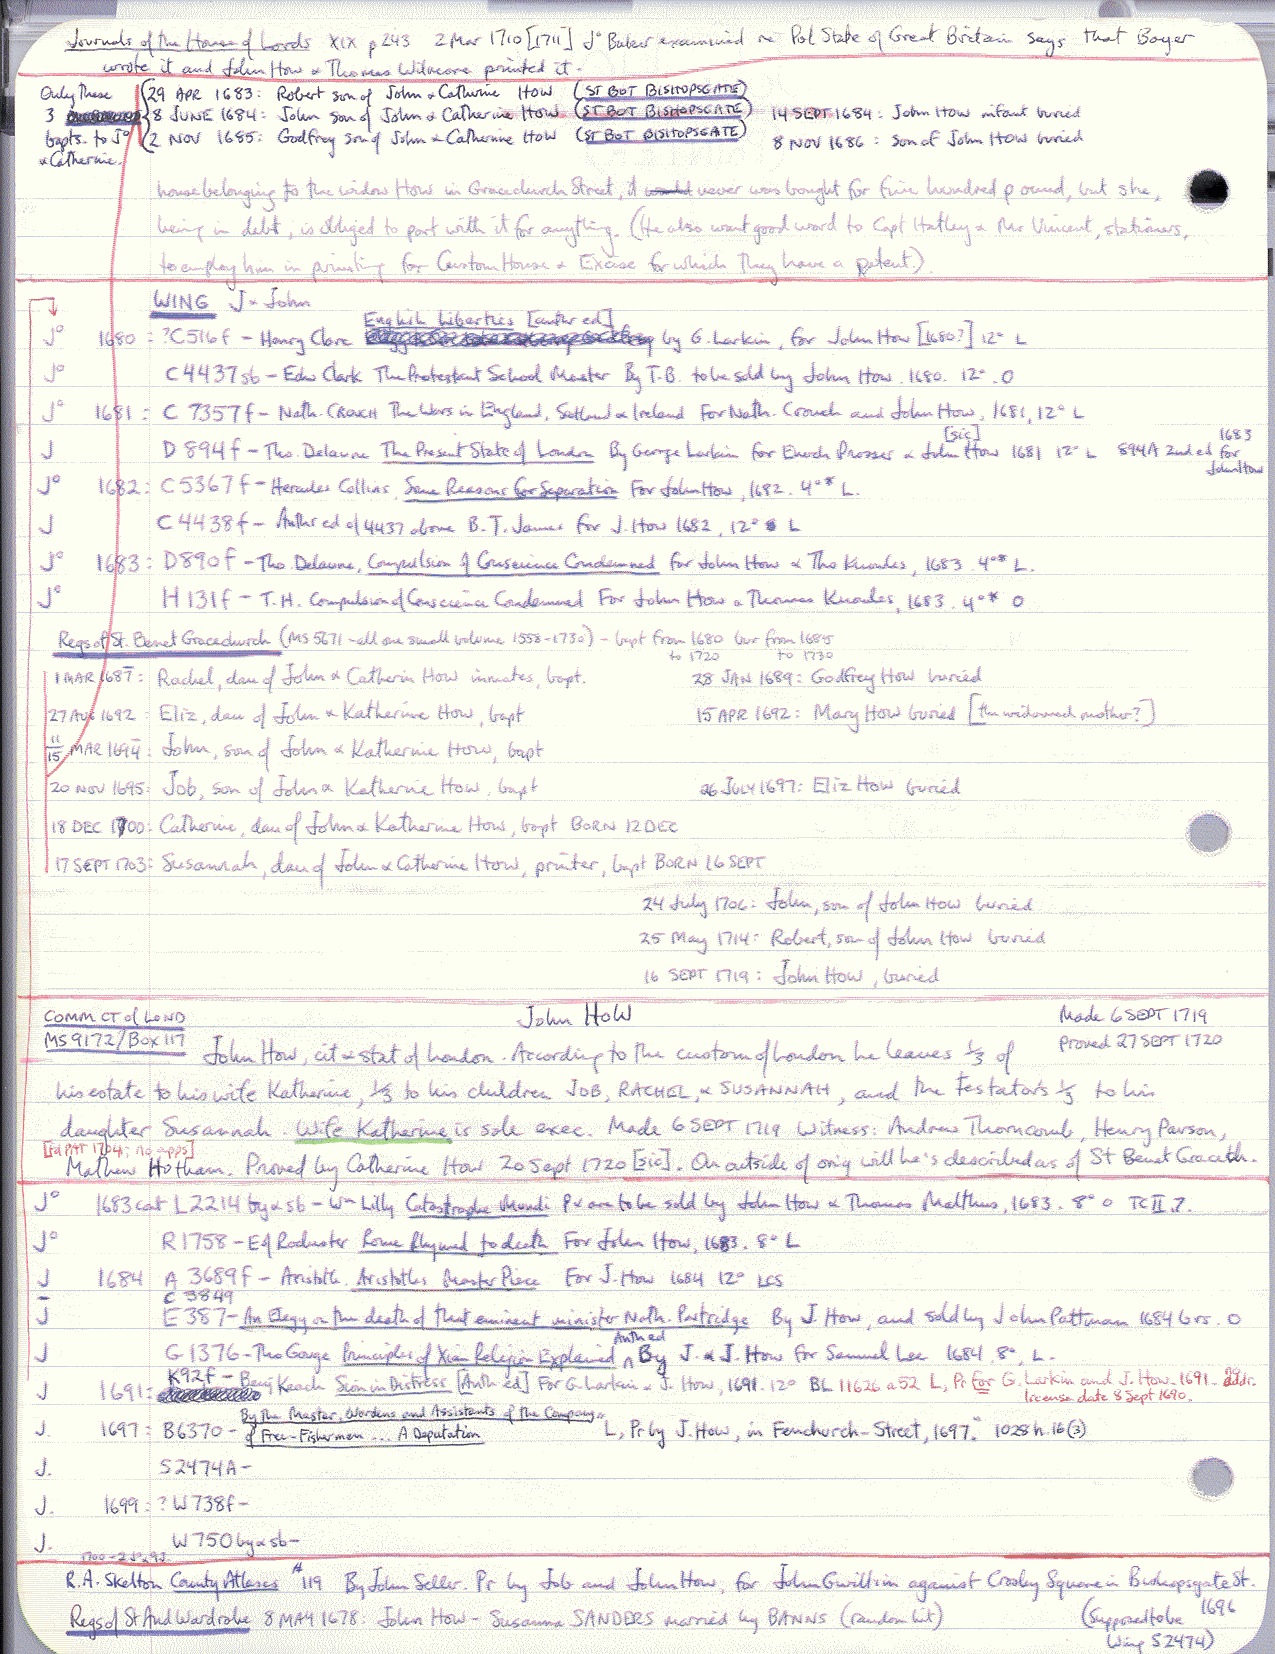 Journals of the House of Lords XIX p243 2 Mar 1710 [1711] Jº Baker examined re Pol State of Great Britain says that Boyer
wrote it and John How & Thomas Wilmore printed it.
Only these 29 APR 1683: Robert son of John & Catherine How (ST BOT BISHOPSGATE)
3 8 JUNE 1684: John son of John & Catherine How (ST BOT BISHOPSGATE) 14 SEPT 1684: John How infant buried
bapts. to Jº 2 NOV 1685: Godfrey son of John & Catherine How (ST BOT BISHOPSGATE) 8 NOV 1686: son of John How buried
& Catherine.
house belonging to the widow How in Gracechurch Street, it never was bought for five hundred pound, but she,
being in debt, is obliged to part with it for anything. (He also want good word to Capt Hatley & Mr Vincent, stationers,
to employ him in printing for Custom House & Excise for which they have a patent.)
WING J = John
English Liberties [anthr ed]
Jº 1680: ?C516f - Henry Clare by G. Larkin, for John How [1680?] 12º L
Jº C4437sb - Edw Clark The Protestant School Master By T.B. to be sold by John How. 1680. 12º. O
Jº 1681: C 7357f - Nath. CROUCH The Wars in England, Scotland & Ireland For Nath. Crouch and John How, 1681, 12º L
[sic] 1683
J D 894f - Tho. Delaune The Present State of London By George Larkin for Enoch Prosser & John How 1681 12º L 894A 2nd ed for
John How
Jº 1682: C5367f - Hercules Collins, Some Reasons for Separation For John How, 1682. 4º* L.
J C4438f - Anthr ed of 4437 above B.T. James for J. How 1682, 12º L
Jº 1683: D890f - Tho. Delaune, Compulsion of Conscience Condemned for John How & Tho Knowles, 1683. 4º* L.
Jº H131f - T.H. Compulsion of Conscience Condemned For John How & Thomas Knowles, 1683. 4º* O
Regs of St. Benet Gracechurch (MS 5671 - all one small volume 1558-1730) - bapt from 1680 bur from 1685
to 1720 to 1730
1 MAR 1687: Rachel, dau of John & Catherin How inmates, bapt. 28 JAN 1689: Godfrey How buried
27 AUG 1692: Eliz, dau of John & Katherine How, bapt 15 APR 1692: Mary How buried [the widowed mother?]
11/15 MAR 1694: John, son of John & Katherine How, bapt
20 NOV 1695: Job, son of John & Katherine How, bapt 26 JULY 1697: Eliz How buried
18 DEC 1700: Catherine, dau of John & Katherine How, bapt BORN 12 DEC
17 SEPT 1703: Susannah, dau of John & Catherine How, printer, bapt BORN 16 SEPT
24 July 1706: John, son of John How buried
25 May 1714: Robert, son of John How buried
16 SEPT 1719: John How, buried
COMM CT of LOND John HOW Made 6 SEPT 1719
MS 9172/Box 117 Proved 27 SEPT 1720
John How, cit & stat of London. According to the custom of London he leaves 1/3 of
his estate to his wife Katherine, 1/3 to his children JOB, RACHEL, & SUSANNAH, and the Testator's 1/3 to his
daughter Susannah. Wife Katherine is sole exec. Made 6 SEPT 1719 Witness: Andrew Thorncomb, Henry Parson,
[fd PAT 1704: no apps]
Mathew Hotham. Proved by Catherine How 20 Sept 1720 [sic]. On outside of orig will he's described as of St Benet Gracech.
Jº 1683 cat L2214 by & sb - Wm Lilly Catastrophe Mundi P & are to be sold by John How & Thomas Malthus, 1683. 8º O TC II.7.
Jº R1758 - E of Rochester Rome Rhymed to death For John How, 1683. 8º L
J 1684 A 3689f - Aristotle. Aristotles Master Piece For J. How 1684 12º LCS
C 3849
J E387 - An Elegy on the death of that eminent minister Nath. Partridge By J. How, and sold by John Pattman 1684 brs. O
Anth ed
J G1376 - Tho Gouge Principles of Xian Religion Explained By J. & J. How for Samuel Lee 1684. 8º, L.
J 1691: K92f - Benj Keach Sion in Distress [Auth ed] For G. Larkin & J. How, 1691. 12º BL 11626 a 52 L, Pr for G. Larkin and J. How. 1691. addr.
license date 8 Sept 1690.
By the Master, Wardens and Assistants of the Company
J. 1697: B6370 - of Free-Fishermen ... A Deputation L, Pr by J. How, in Fenchurch-Street, 1697. 1028 h. 16 (3)
J. S2474A -
J. 1699: ?W738f -
J. W750 by & sb -
1700 - 2 Jº & 9 J.
R.A. Skelton County Atlases #119 By John Seller. Pr by Job and John How, for John Gwillim against Crosby Square in Bishopsgate St.
1696
Regs of St And Wardrobe 8 MAY 1678: John How - Susanna SANDERS married by BANNS (random hit) (Supposed to be
Wing S2474)